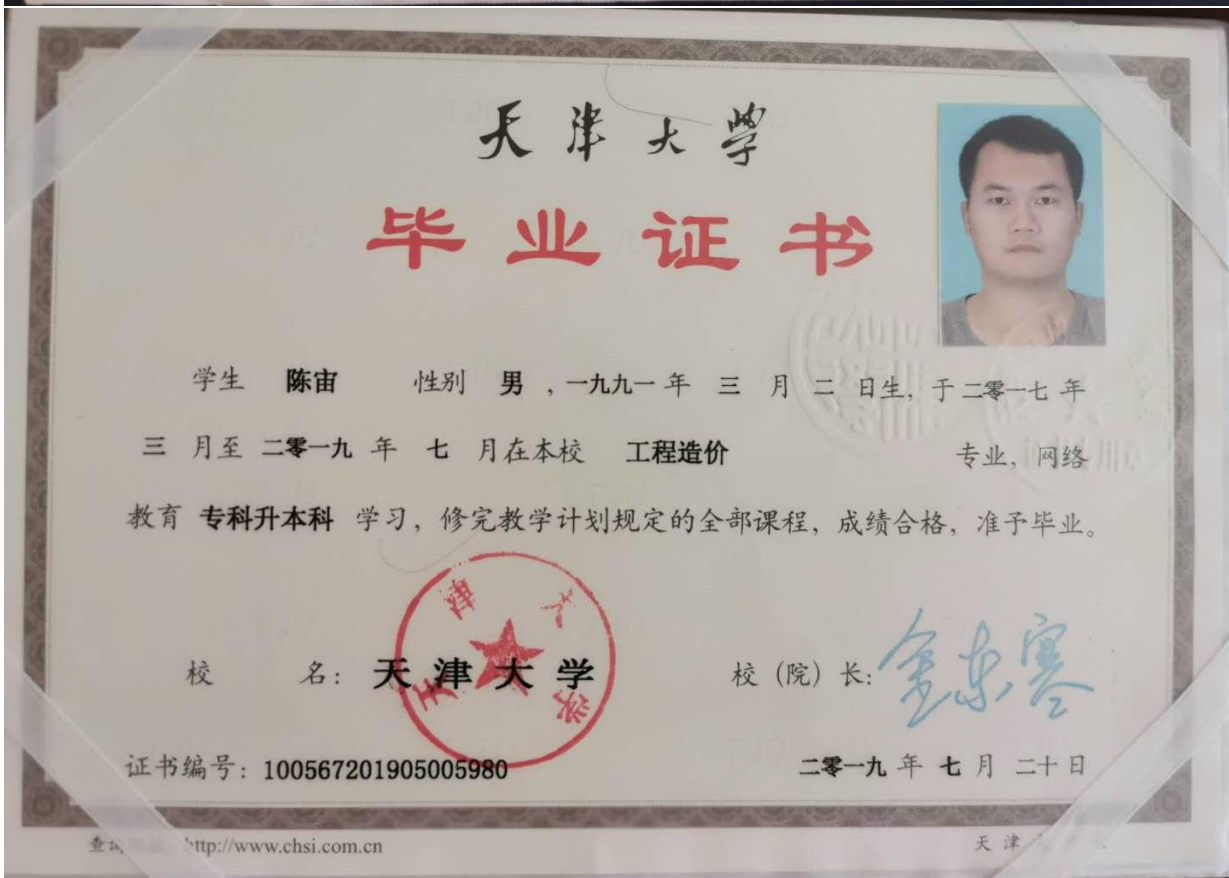 天津大学
毕业证书
学生 陈宙 性别 男 , 一九九一 年 三 月 二 日生, 于 二零一七 年
三 月至 二零一九 年 七 月在本校 工程造价 专业, 网络
教育 专科升本科 学习, 修完教学计划规定的全部课程, 成绩合格, 准予毕业。
天津大学
校 名: 天津大学 校 (院) 长: 金东寒
证书编号: 100567201905005980 二零一九 年 七 月 二十 日
http://www.chsi.com.cn 天津